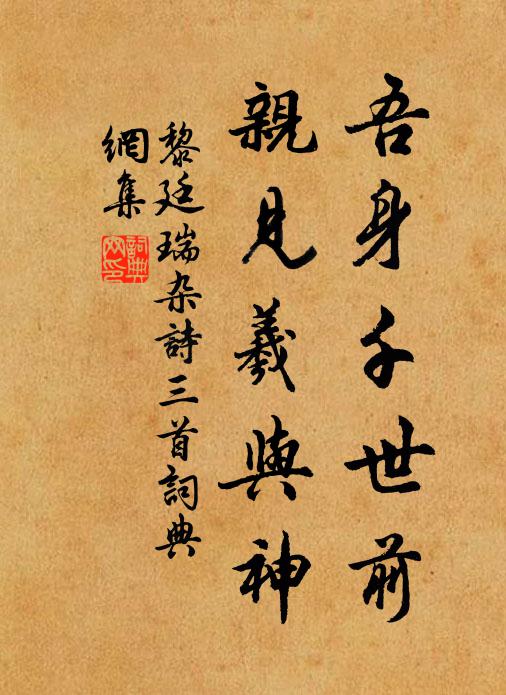 吾身千世前
親見羲與神
黎廷瑞杂詩三首詞典
網集
詞典
网印